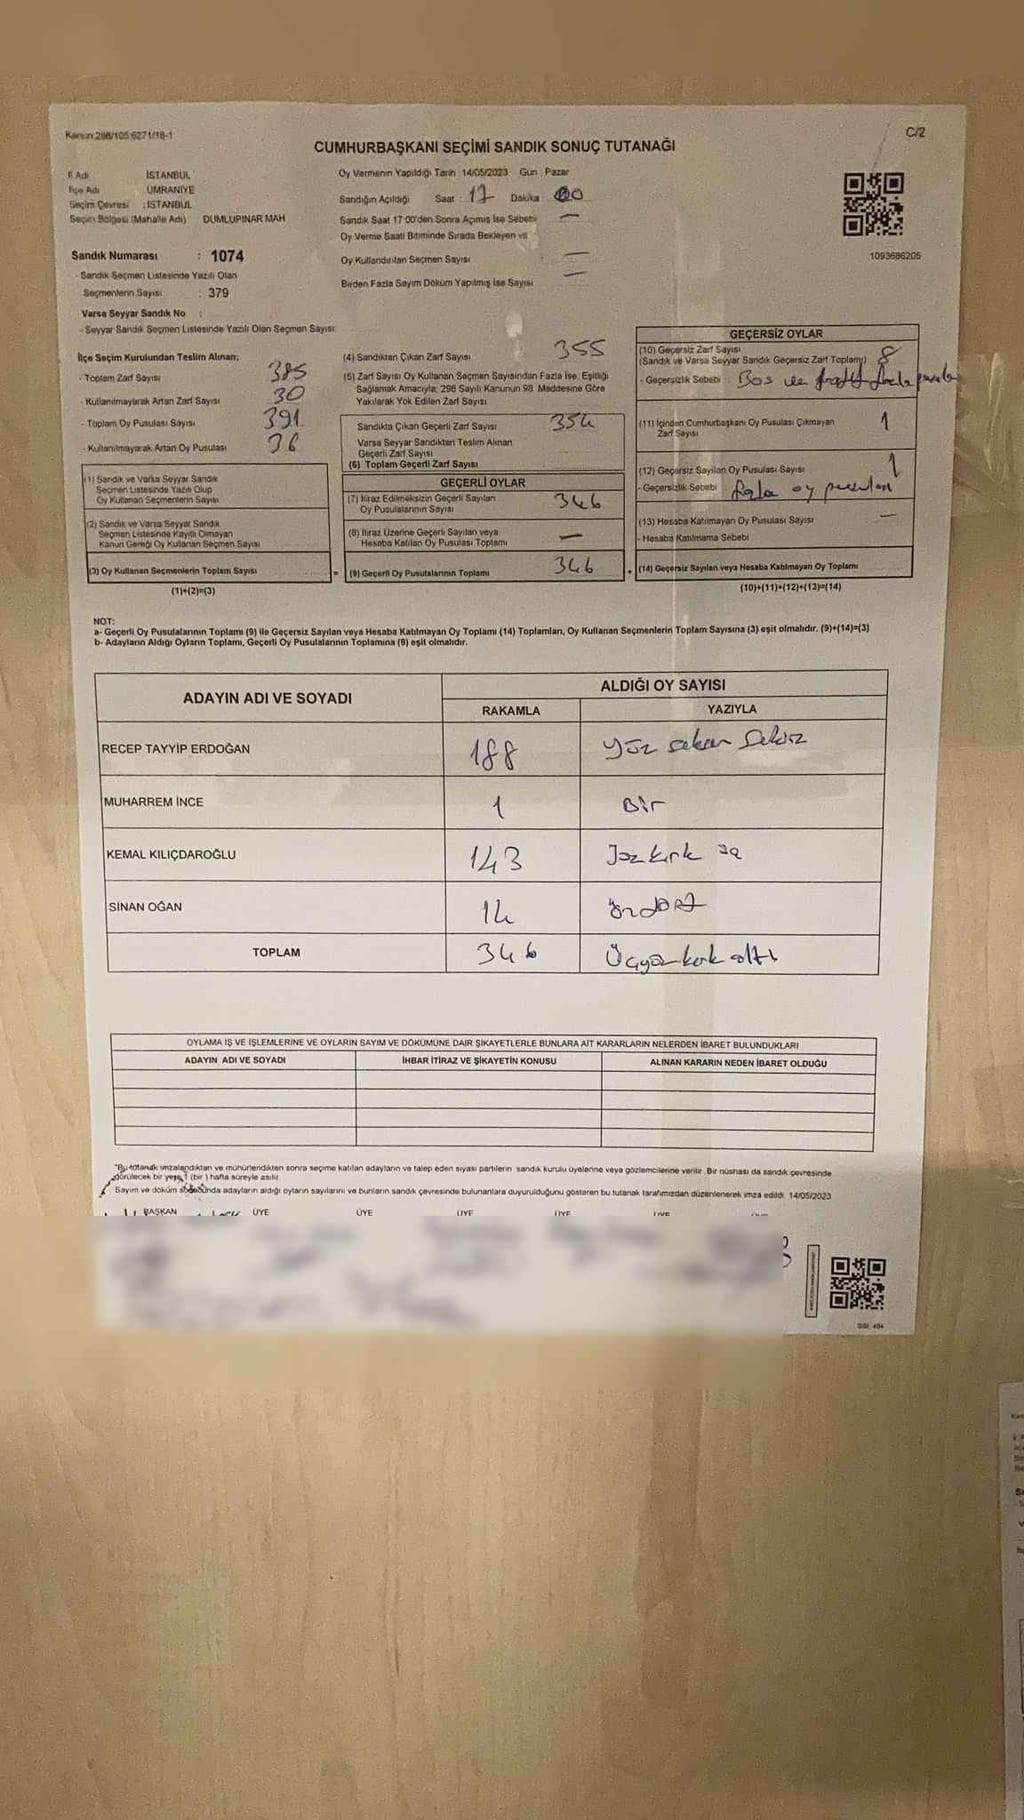 Kanun:298/105 6271/18-1
C/2
CUMHURBAŞKANI SEÇİMİ SANDIK SONUÇ TUTANAĞI
İl Adı İSTANBUL
İlçe Adı ÜMRANİYE
Seçim Çevresi : İSTANBUL
Seçim Bölgesi (Mahalle Adı) DUMLUPINAR MAH
Sandık Numarası : 1074
- Sandık Seçmen Listesinde Yazılı Olan
Seçmenlerin Sayısı : 379
Varsa Seyyar Sandık No :
- Seyyar Sandık Seçmen Listesinde Yazılı Olan Seçmen Sayısı:
Oy Vermenin Yapıldığı Tarih 14/05/2023 Gün Pazar
Sandığın Açıldığı Saat : 17 Dakika : 00
Sandık Saat 17:00'den Sonra Açılmış İse Sebebi —
Oy Verme Saati Bitiminde Sırada Bekleyen ve
Oy Kullandırılan Seçmen Sayısı —
Birden Fazla Sayım Döküm Yapılmış İse Sayısı —
1093686205
İlçe Seçim Kurulundan Teslim Alınan;
- Toplam Zarf Sayısı 385
- Kullanılmayarak Artan Zarf Sayısı 30
- Toplam Oy Pusulası Sayısı 391
- Kullanılmayarak Artan Oy Pusulası 36
(1) Sandık ve Varsa Seyyar Sandık
Seçmen Listesinde Yazılı Olup
Oy Kullanan Seçmenlerin Sayısı
(2) Sandık ve Varsa Seyyar Sandık
Seçmen Listesinde Kayıtlı Olmayan
Kanun Gereği Oy Kullanan Seçmen Sayısı
(3) Oy Kullanan Seçmenlerin Toplam Sayısı
(1)+(2)=(3)
(4) Sandıktan Çıkan Zarf Sayısı 355
(5) Zarf Sayısı Oy Kullanan Seçmen Sayısından Fazla İse, Eşitliği
Sağlamak Amacıyla, 298 Sayılı Kanunun 98. Maddesine Göre
Yakılarak Yok Edilen Zarf Sayısı
Sandıkta Çıkan Geçerli Zarf Sayısı 354
Varsa Seyyar Sandıktan Teslim Alınan
Geçerli Zarf Sayısı
(6) Toplam Geçerli Zarf Sayısı
GEÇERLİ OYLAR
(7) İtiraz Edilmeksizin Geçerli Sayılan
Oy Pusulalarının Sayısı 346
(8) İtiraz Üzerine Geçerli Sayılan veya
Hesaba Katılan Oy Pusulası Toplamı —
= (9) Geçerli Oy Pusulalarının Toplamı 346
GEÇERSİZ OYLAR
(10) Geçersiz Zarf Sayısı
(Sandık ve Varsa Seyyar Sandık Geçersiz Zarf Toplamı) 8
- Geçersizlik Sebebi : Boş ve
(11) İçinden Cumhurbaşkanı Oy Pusulası Çıkmayan
Zarf Sayısı 1
(12) Geçersiz Sayılan Oy Pusulası Sayısı 1
- Geçersizlik Sebebi : fazla oy pusulası
(13) Hesaba Katılmayan Oy Pusulası Sayısı —
- Hesaba Katılmama Sebebi
+ (14) Geçersiz Sayılan veya Hesaba Katılmayan Oy Toplamı
(10)+(11)+(12)+(13)=(14)
NOT:
a- Geçerli Oy Pusulalarının Toplamı (9) ile Geçersiz Sayılan veya Hesaba Katılmayan Oy Toplamı (14) Toplamları, Oy Kullanan Seçmenlerin Toplam Sayısına (3) eşit olmalıdır. (9)+(14)=(3)
b- Adayların Aldığı Oyların Toplamı, Geçerli Oy Pusulalarının Toplamına (9) eşit olmalıdır.
ADAYIN ADI VE SOYADI
ALDIĞI OY SAYISI
RAKAMLA YAZIYLA
RECEP TAYYİP ERDOĞAN 188 yüz seksen sekiz
MUHARREM İNCE 1 Bir
KEMAL KILIÇDAROĞLU 143 Yüz kırk üç
SİNAN OĞAN 14 Öndört
TOPLAM 346 Üçyüz kırk altı
OYLAMA İŞ VE İŞLEMLERİNE VE OYLARIN SAYIM VE DÖKÜMÜNE DAİR ŞİKAYETLERLE BUNLARA AİT KARARLARIN NELERDEN İBARET BULUNDUKLARI
ADAYIN ADI VE SOYADI İHBAR İTİRAZ VE ŞİKAYETİN KONUSU ALINAN KARARIN NEDEN İBARET OLDUĞU
"Bu tutanak imzalandıktan ve mühürlendikten sonra seçime katılan adayların ve talep eden siyasi partilerin sandık kurulu üyelerine veya gözlemcilerine verilir. Bir nüshası da sandık çevresinde
görülecek bir yere 1 (bir) hafta süreyle asılır
Sayım ve döküm sonucunda adayların aldığı oyların sayılarını ve bunların sandık çevresinde bulunanlara duyurulduğunu gösteren bu tutanak tarafımızdan düzenlenerek imza edildi. 14/05/2023
BAŞKAN ÜYE ÜYE ÜYE ÜYE